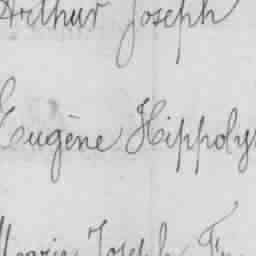 Arthur Joseph
Eugène Hippoly
Marie Joseph Fr